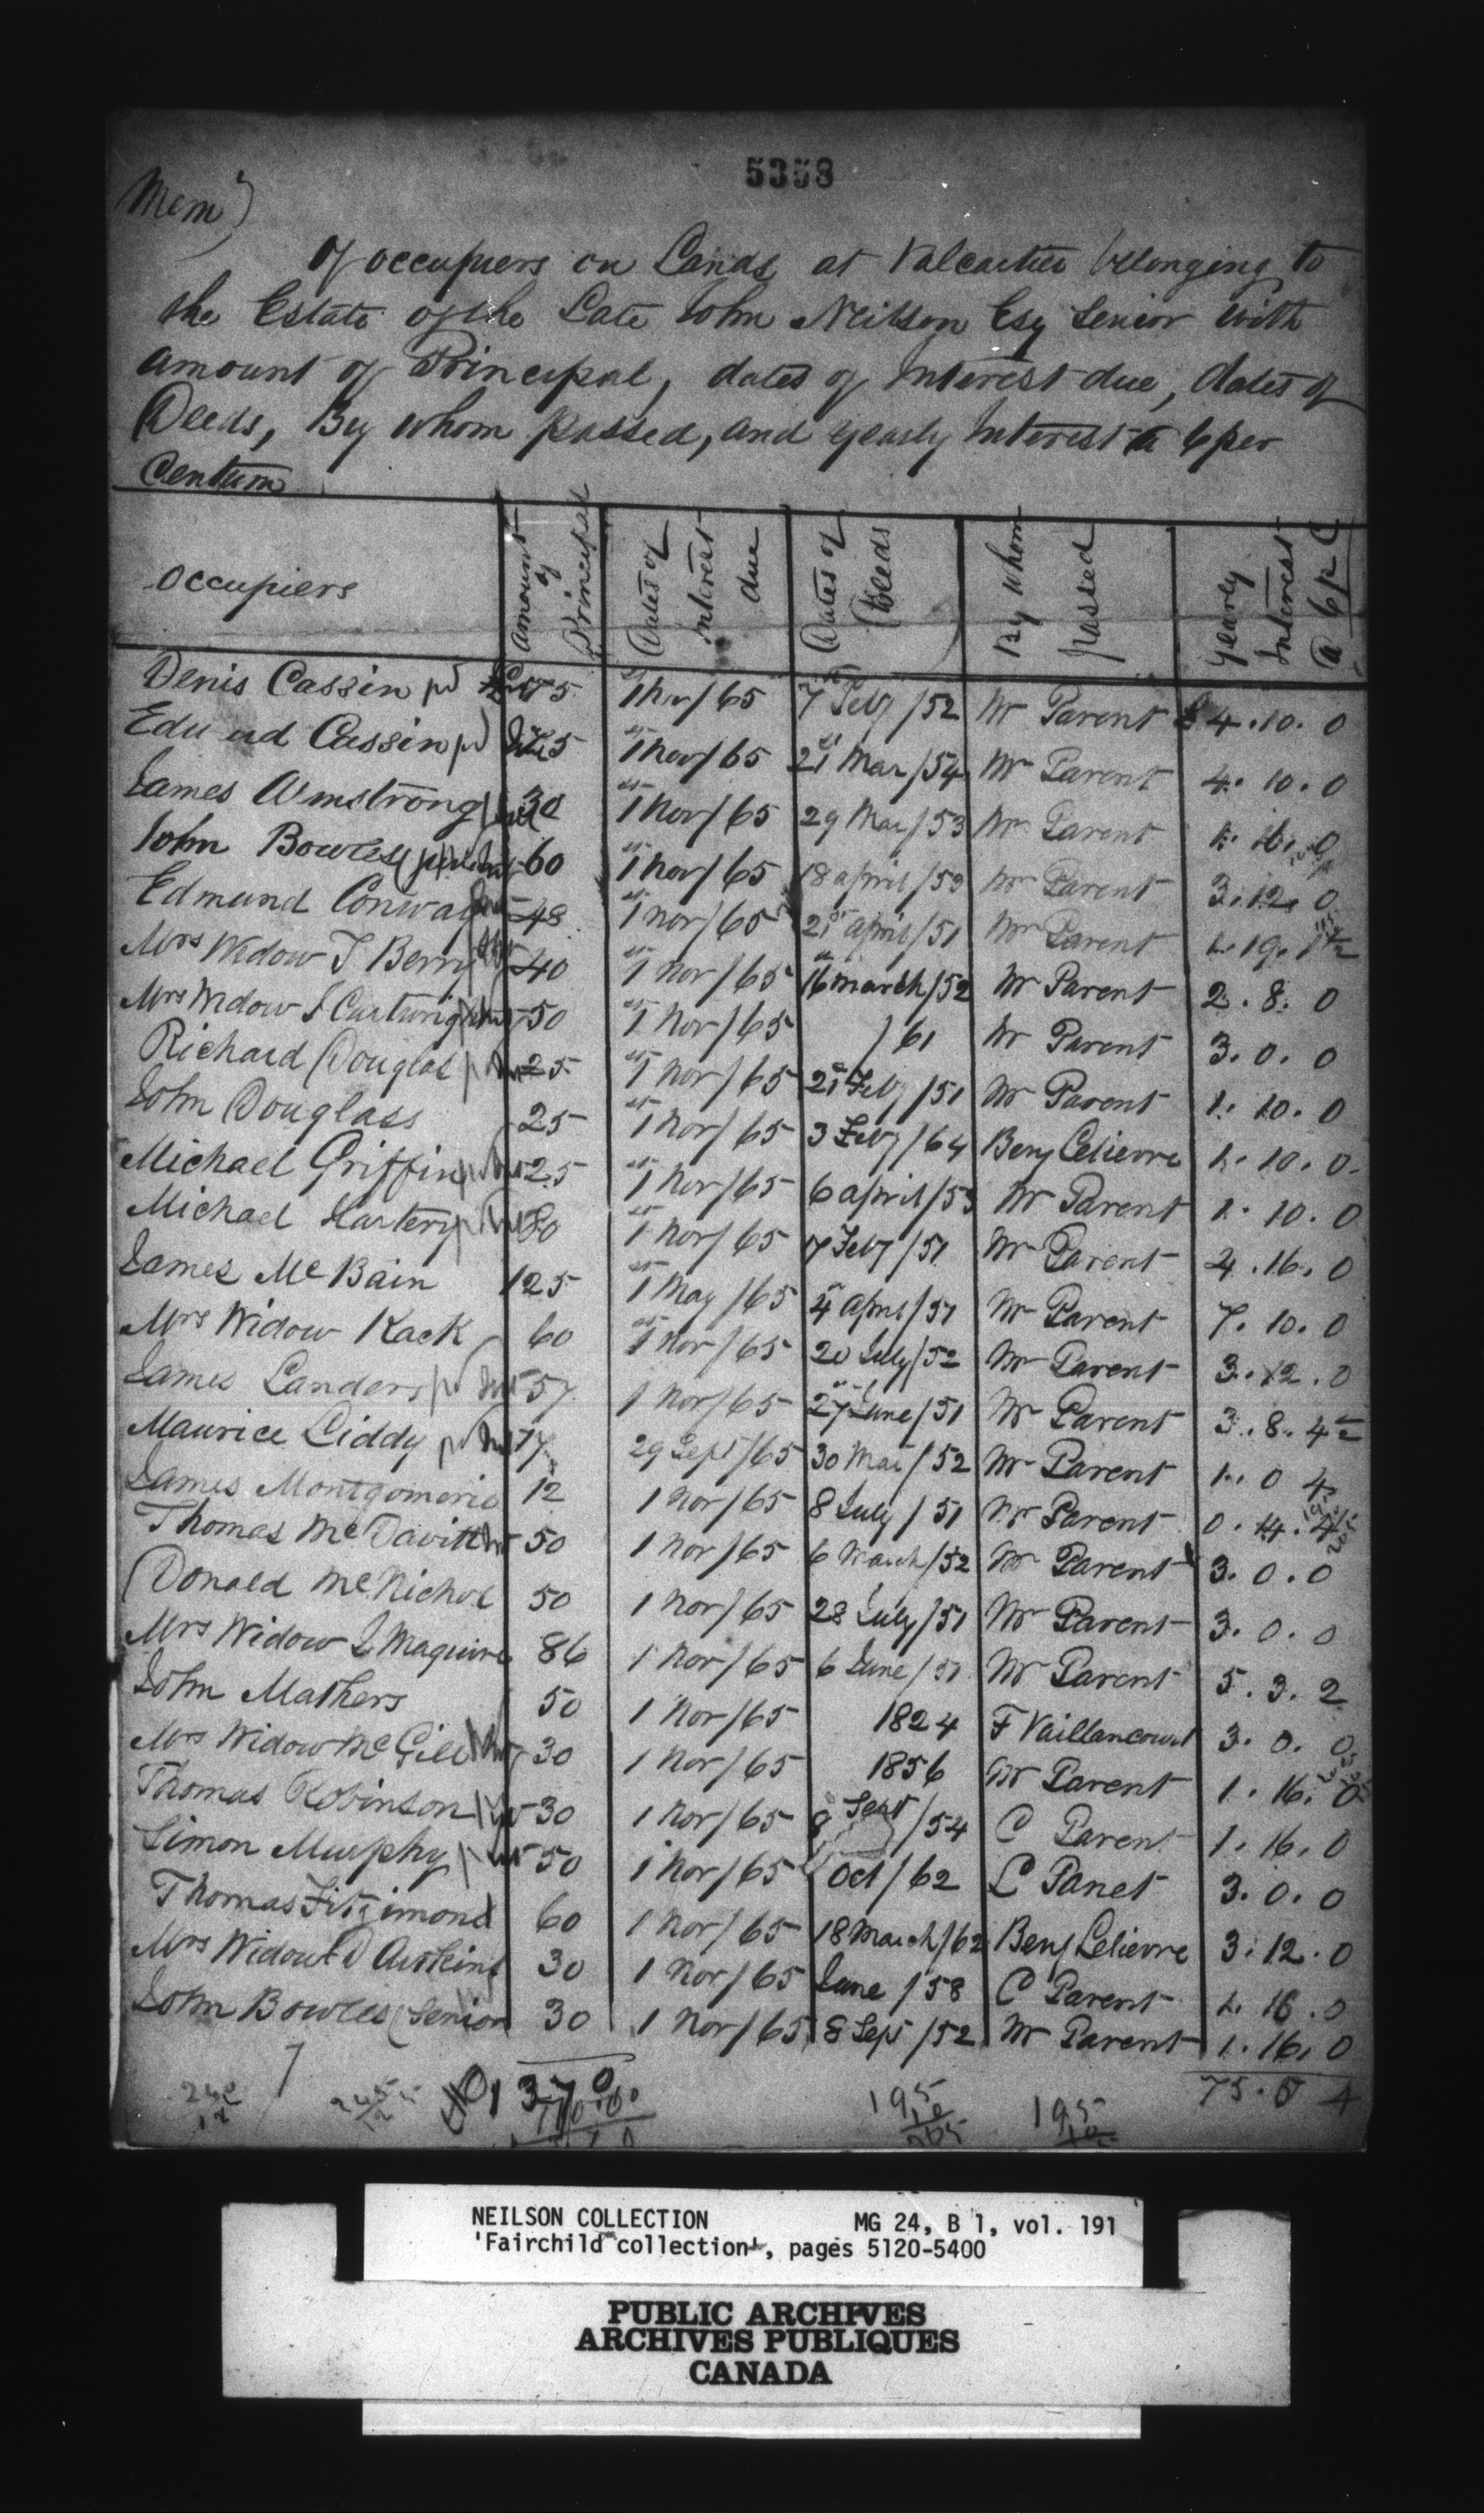 5358
Mem)
Of occupiers on Lands at Valcartier belonging to
the Estate of the Late John Neilson Esq Senior with
amount of Principal, dates of Interest due, dates of
Deeds, By whom passed, and yearly Interest a 6 per
Centum
Occupiers Amount of Principal Dates of Interest due Dates of Deeds By Whom passed Yearly Interest a 6 p C
Denis Cassin pd 75 1 Nov/65 7 Feby/52 Mr Parent £4.10.0
Edu ud Cassin pd 75 1st Nov/65 21st Mar/54 Mr Parent 4.10.0
James Armstrong 30 1st Nov/65 29 Mar/53 Mr Parent 1.16.0
John Bowles 60 1st Nov/65 18 april/53 Mr Parent 3.12.0
Edmund Conway 48 1st Nov/65 21st april/51 Mr Parent 1.19.
Mrs Widow T Berry 40 1st Nov/65 16 march/52 Mr Parent 2.8.0
Mrs Widow J Cartwright 50 1st Nov/65 /61 Mr Parent 3.0.0
Richard Douglas 25 1st Nov/65 21st Feby/51 Mr Parent 1.10.0
John Douglass 25 1st Nov/65 3 Feby/64 Benj Lelievre 1.10.0
Michael Griffin 25 1st Nov/65 6 april/53 Mr Parent 1.10.0
Michael Hartery 80 1st Nov/65 17 Feby/51 Mr Parent 4.16.0
James Mc Bain 125 1st May/65 4 April/51 Mr Parent 7.10.0
Mrs Widow Kack 60 1st Nov/65 20 July/52 Mr Parent 3.12.0
James Landers pd 57 1 Nov/65 27 June/51 Mr Parent 3.8.4
Maurice Liddy pd 17 29 Sept/65 30 Mar/52 Mr Parent 1.0 4
James Montgomerie 12 1 Nov/65 8 July/51 Mr Parent 0.14.4
Thomas McDavitt 50 1 Nov/65 6 March/52 Mr Parent 3.0.0
Donald McNichol 50 1 Nov/65 28 July/51 Mr Parent 3.0.0
Mrs Widow J Maguire 86 1 Nov/65 6 June/51 Mr Parent 5.3.2
John Mathers 50 1 Nov/65 1824 F Vaillancourt 3.0.0
Mrs Widow McGill 30 1 Nov/65 1856 Mr Parent 1.16.0
Thomas Robinson 30 1 Nov/65 8 Sept/54 C Parent 1.16.0
Simon Murphy 50 1 Nov/65 Oct/62 L Panet 3.0.0
Thomas Fitzimond 60 1 Nov/65 18 March/62 Benj Lelievre 3.12.0
Mrs Widow D Auskins 30 1 Nov/65 June/58 C Parent 1.16.0
John Bowles (Senior 30 1 Nov/65 8 Sept/52 Mr Parent 1.16.0
1370 75.5 4
195 195
NEILSON COLLECTION MG 24, B 1, vol. 191
'Fairchild collection', pages 5120-5400
PUBLIC ARCHIVES
ARCHIVES PUBLIQUES
CANADA